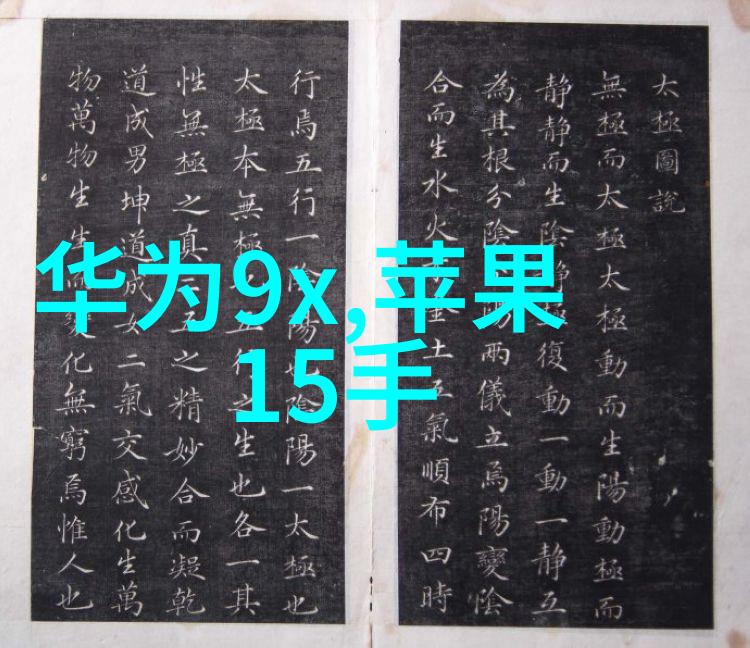 华为9x,苹果
15手
太極圖說
無極而太極太極動而生陽動極而
静静而生陰静極復動一動一静互
為其根分陰陽兩儀立焉陽變陰
合而生水火金土五氣順布四時
行焉五行一陰陽也陰陽一太極也
太極本無極五行之生也各一其
性無極之真五之精妙合而凝乾
道成男坤道成女二氣交感化生萬
物萬物生生而變化無窮焉惟人也